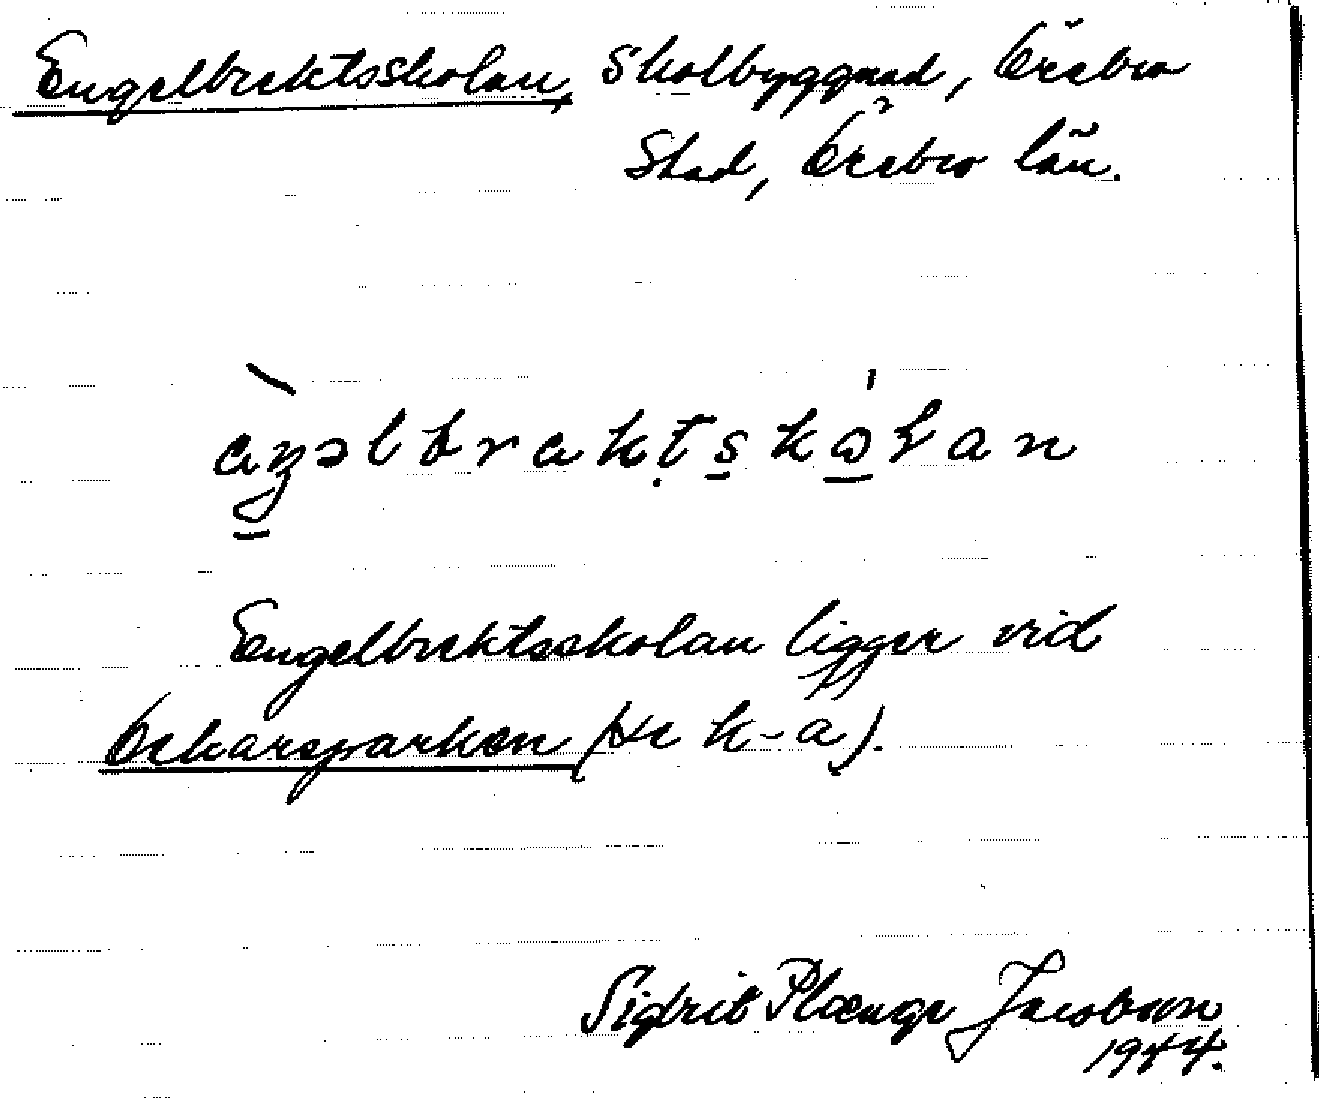 Engelbrektsskolan, Skolbyggnad, Örebro
Stad, Örebro län.
Engelbrektsskolan ligger vid
Oskarsparken (Se k-a).
Sigrid Plænge Jacobson
1944.